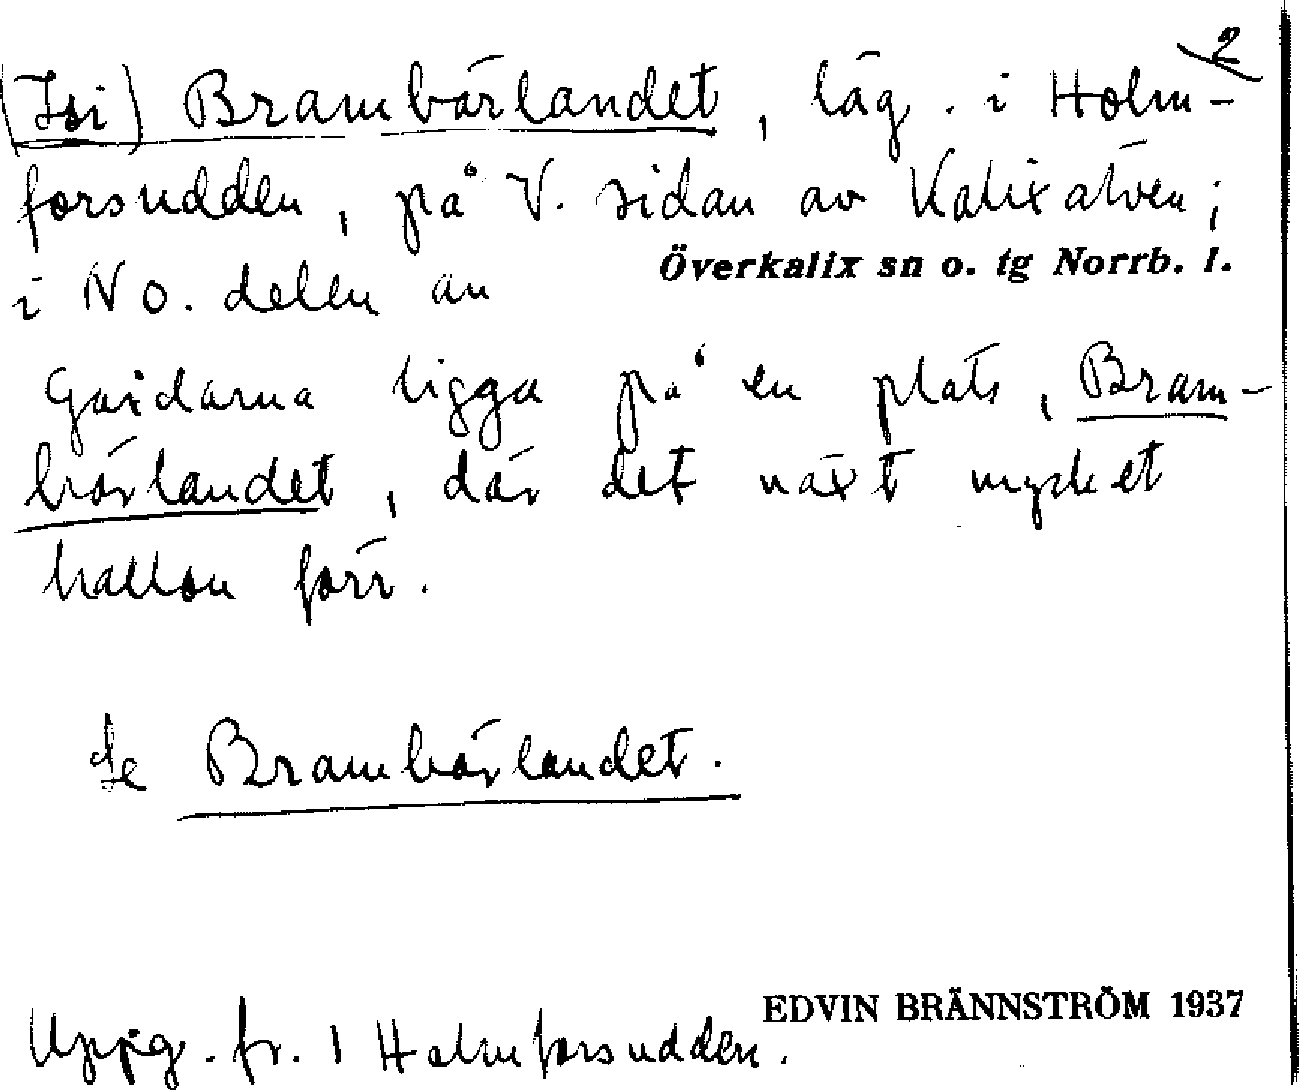 2
(Isi) Brambärlandet, läg. i Holm-
forsudden, på V. sidan av Kalixälven;
Överkalix sn o. tg Norrb. l.
i NO. delen av
Gårdarna ligga på en plats, Bram-
bärlandet, där det växt mycket
hallon förr.
Se Brambärlandet.
EDVIN BRÄNNSTRÖM 1937
Uppg. fr. 1 Holmforsudden.